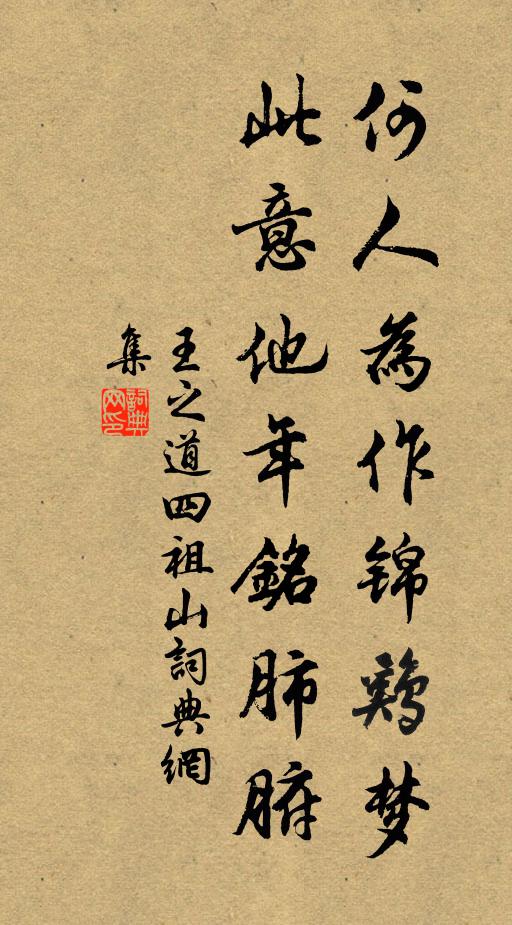 何人為作锦鷄梦
此意他年銘肺腑
王之道四祖山詞典網
集
詞典網印